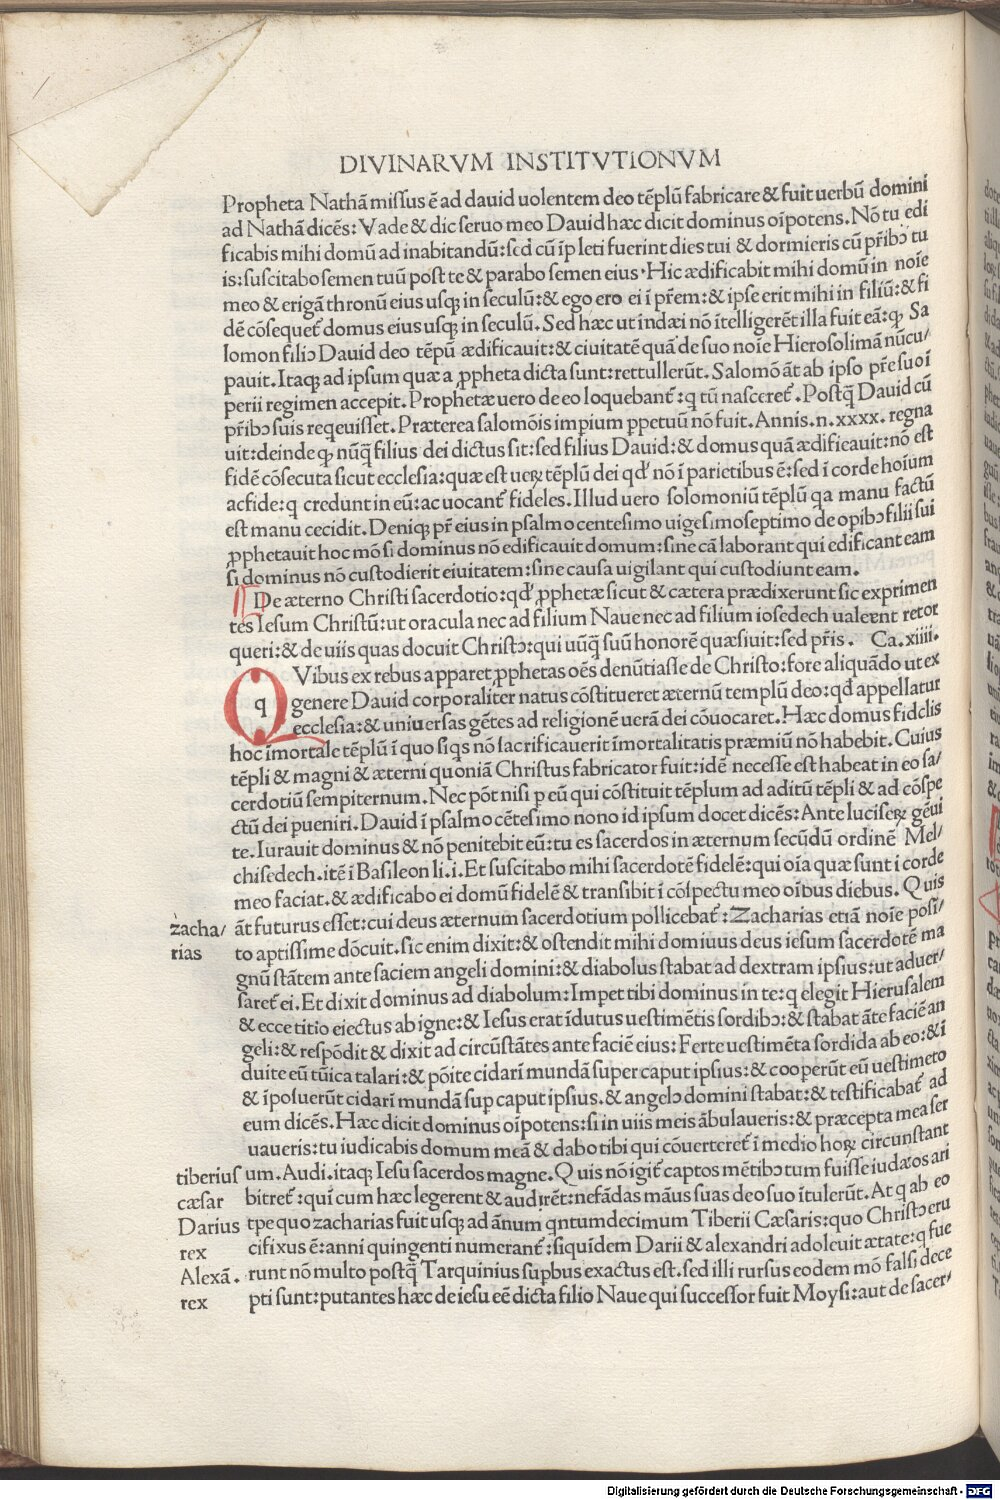 DIVINARVM INSTITVTIONVM
Propheta Nathã missus ē ad dauid uolentem deo tēplũ fabricare & fuit uerbũ domini
ad Nathã dicēs: Vade & dic seruo meo Dauid hæc dicit dominus oīpotens. Nõ tu edi
ficabis mihi domũ ad inabitandũ: sed cũ īpleti fuerint dies tui & dormieris cũ pr̄ibꝰ tu
is: suscitabo semen tuũ post te & parabo semen eius. Hic ædificabit mihi domũ in noīe
meo & erigã thronũ eius usqꝫ in seculũ: & ego ero ei ī pr̄em: & ipse erit mihi in filiũ: & fi
dē cõsequet̄ domus eius usqꝫ in seculũ. Sed hæc ut indæi nõ ītelligerēt illa fuit cã: qꝫ Sa
lomon filiꝰ Dauid deo tēpũ ædificauit: & ciuitatē quã de suo noīe Hierosolimã nũcu/
pauit. Itaqꝫ ad ipsum quæ a ꝓpheta dicta sunt: rettullerũt. Salomõ āt ab ipso pr̄e suo ī
perii regimen accepit. Prophetæ uero de eo loquebant̄: q tũ nasceret̄. Postq̄ Dauid cũ
pr̄ibꝰ suis reqeuisset. Præterea salomõis impium ꝑpetuũ nõ fuit. Annis. n. xxxx. regna
uit: deinde qꝫ nũq̄ filius dei dictus sit: sed filius Dauid: & domus quã ædificauit: nõ est
fidē cõsecuta sicut ecclesia: quæ est ueꝝ tēplũ dei qđ nõ ī parietibus ē: sed ī corde hoīum
ac fide: q credunt in eũ: ac uocant̄ fideles. Illud uero solomoniũ tēplũ qa manu factũ
est manu cecidit. Deniqꝫ pr̄ eius in psalmo centesimo uigesimoseptimo de opibꝰ filii sui
ꝓphetauit hoc mõ si dominus nõ edificauit domum: sine cã laborant qui edificant eam
si dominus nõ custodierit eiuitatem: sine causa uigilant qui custodiunt eam.
De æterno Christi sacerdotio: qđ ꝓphetæ sicut & cætera prædixerunt sic exprimen
tes Iesum Christũ: ut oracula nec ad filium Naue nec ad filium iosedech ualeent retor
queri: & de uiis quas docuit Christꝰ: qui uũq̄ suũ honorē quæsiuit: sed pr̄is. Ca. xiiii.
QVibus ex rebus apparet ꝓphetas oēs denũtiasse de Christo: fore aliquãdo ut ex
genere Dauid corporaliter natus cõstitueret æternũ templũ deo: qđ appellatur
ecclesia: & uniuersas gētes ad religionē uerã dei cõuocaret. Hæc domus fidelis
hoc īmortale tēplũ ī quo siqs nõ sacrificauerit īmortalitatis præmiũ nõ habebit. Cuius
tēpli & magni & æterni quoniã Christus fabricator fuit: idē necesse est habeat in eo sa/
cerdotiũ sempiternum. Nec põt nisi ꝑ eũ qui cõstituit tēplum ad aditũ tēpli & ad cõspe
ctũ dei pueniri. Dauid ī psalmo cētesimo nono id ipsum docet dicēs: Ante luciseꝝ gēui
te. Iurauit dominus & nõ penitebit eũ: tu es sacerdos in æternum secũdũ ordinē Mel/
chisedech. itē ī Basileon li. i. Et suscitabo mihi sacerdotē fidelē: qui oīa quæ sunt ī corde
meo faciat. & ædificabo ei domũ fidelē & transibit ī cõspectu meo oībus diebus. Quis
zacha/ āt futurus esset: cui deus æternum sacerdotium pollicebat̄: Zacharias etiã noīe posi/
rias to aptissime dõcuit. sic enim dixit: & ostendit mihi domiuus deus iesum sacerdotē ma
gnũ stãtem ante faciem angeli domini: & diabolus stabat ad dextram ipsius: ut aduer/
saret̄ ei. Et dixit dominus ad diabolum: Impet tibi dominus in te: q elegit Hierusalem
& ecce titio eiectus ab igne: & Iesus erat īdutus uestimētis sordibꝰ: & stabat ãte faciē an
geli: & respõdit & dixit ad circũstãtes ante faciē eius: Ferte uestimēta sordida ab eo: & ī
duite eũ tũica talari: & põite cidarī mundã super caput ipsius: & cooperũt eũ uestimeto
& īposuerũt cidarī mundã sup caput ipsius. & angelꝰ domini stabat: & testificabat̄ ad
eum dicēs. Hæc dicit dominus oīpotens: si in uiis meis ãbulaueris: & præcepta mea ser
uaueris: tu iudicabis domum meã & dabo tibi qui cõuerteret̄ ī medio hoꝝ circunstant
tiberius um. Audi. itaqꝫ Iesu sacerdos magne. Quis nõ igit̄ captos mētibꝰ tum fuisse iudæos ari
cæsar bitret̄: qui cum hæc legerent & audirēt: nefãdas mãus suas deo suo ītulerũt. At q ab eo
Darius tpe quo zacharias fuit usqꝫ ad ãnum qntumdecimum Tiberii Cæsaris: quo Christꝰ cru
rex cifixus ē: anni quingenti numerant̄: siquidem Darii & alexandri adoleuit ætate: q fue
Alexã. runt nõ multo postq̄ Tarquinius supbus exactus est. sed illi rursus eodem mõ falsi dece
rex pti sunt: putantes hæc de iesu eē dicta filio Naue qui successor fuit Moysi: aut de sacer/
Digitalisierung gefördert durch die Deutsche Forschungsgemeinschaft - DFG